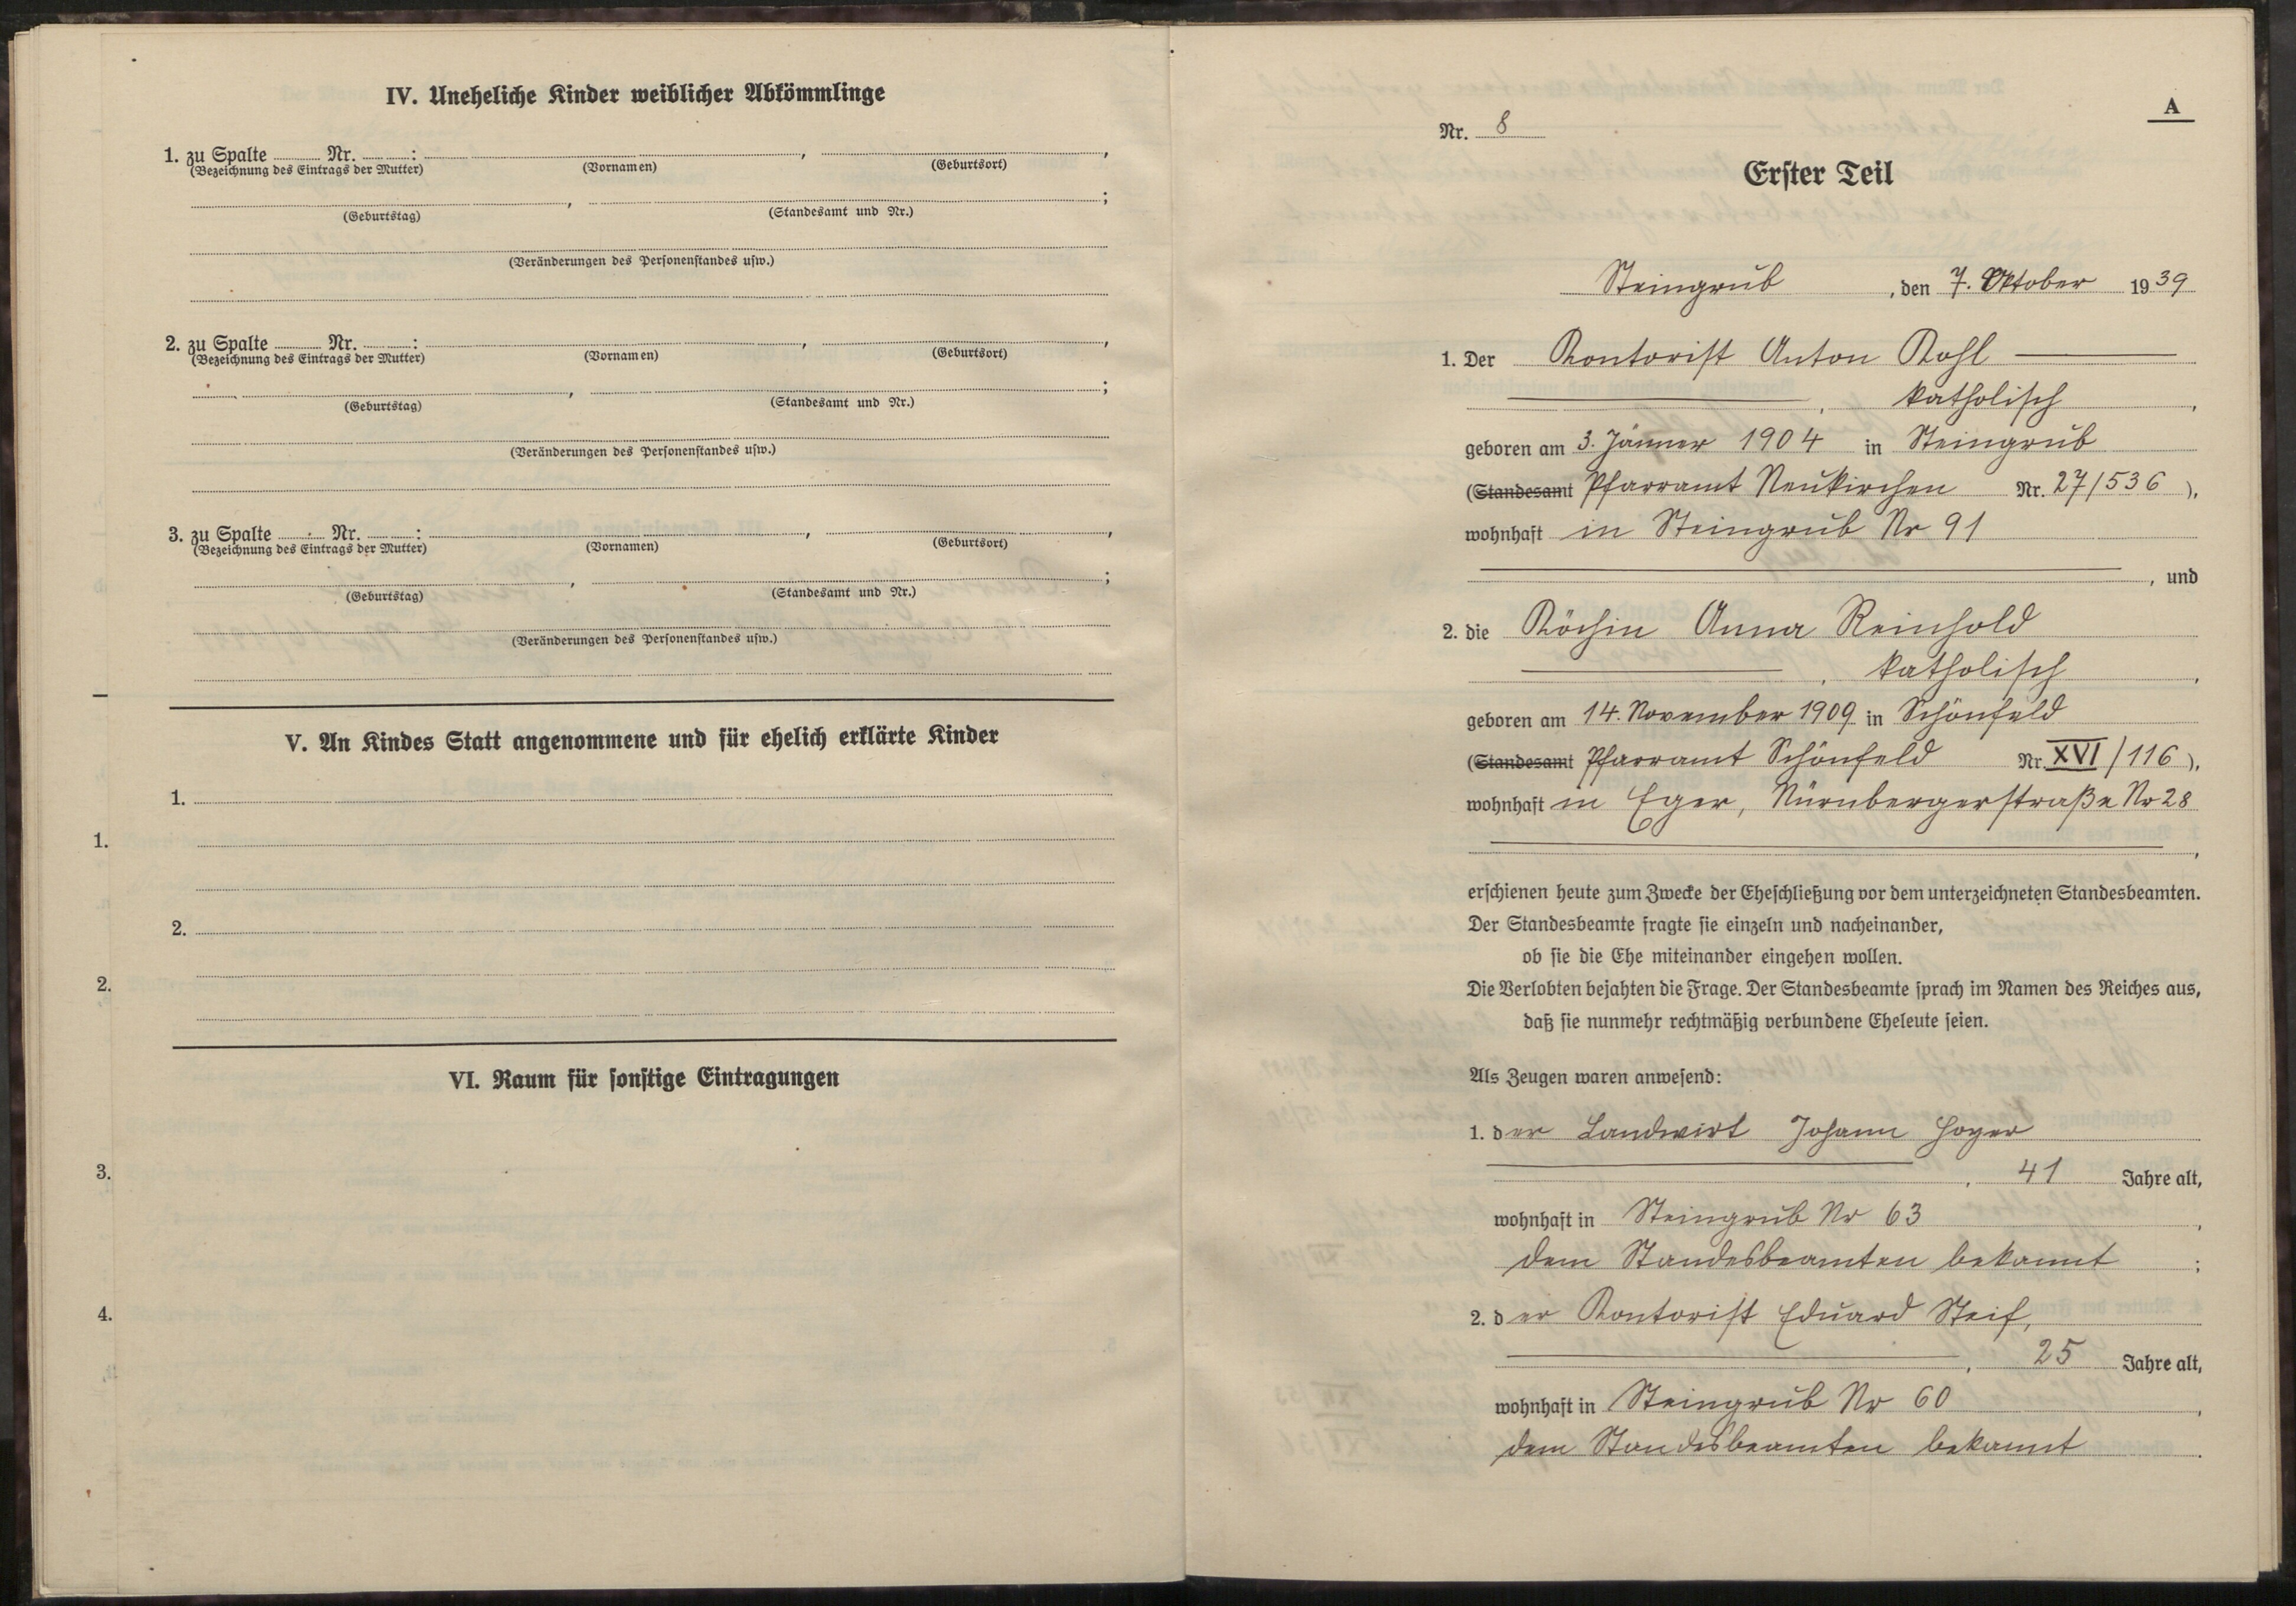 IV. Uneheliche Kinder weiblicher Abkömmlinge
1. zu Spalte Nr. : , ,
(Bezeichnung des Eintrags der Mutter) (Vornamen) (Geburtsort)
, ;
(Geburtstag) (Standesamt und Nr.)
(Veränderungen des Personenstandes usw.)
2. zu Spalte Nr. : , ,
(Bezeichnung des Eintrags der Mutter) (Vornamen) (Geburtsort)
, ;
(Geburtstag) (Standesamt und Nr.)
(Veränderungen des Personenstandes usw.)
3. zu Spalte Nr. : , ,
(Bezeichnung des Eintrags der Mutter) (Vornamen) (Geburtsort)
, ;
(Geburtstag) (Standesamt und Nr.)
(Veränderungen des Personenstandes usw.)
V. An Kindes Statt angenommene und für ehelich erklärte Kinder
1.
1.
2.
2.
VI. Raum für sonstige Eintragungen
3.
4.
A
Nr. 8
Erster Teil
Steingrub, den 7. Oktober 1939
1. Der Kontorist Anton Kohl
, katholisch,
geboren am 3. Jänner 1904 in Steingrub
(Standesamt Pfarramt Neukirchen Nr. 27/536),
wohnhaft in Steingrub Nr 91
, und
2. die Köchin Anna Reinhold
, katholisch,
geboren am 14. November 1909 in Schönfeld
(Standesamt Pfarramt Schönfeld Nr. XVI/116),
wohnhaft in Eger, Nürnbergerstraße Nr 28
,
erschienen heute zum Zwecke der Eheschließung vor dem unterzeichneten Standesbeamten.
Der Standesbeamte fragte sie einzeln und nacheinander,
ob sie die Ehe miteinander eingehen wollen.
Die Verlobten bejahten die Frage. Der Standesbeamte sprach im Namen des Reiches aus,
daß sie nunmehr rechtmäßig verbundene Eheleute seien.
Als Zeugen waren anwesend:
1. der Landwirt Johann Hoyer
, 41 Jahre alt,
wohnhaft in Steingrub Nr 63,
dem Standesbeamten bekannt;
2. der Kontorist Eduard Steif,
, 25 Jahre alt,
wohnhaft in Steingrub Nr 60,
dem Standesbeamten bekannt.